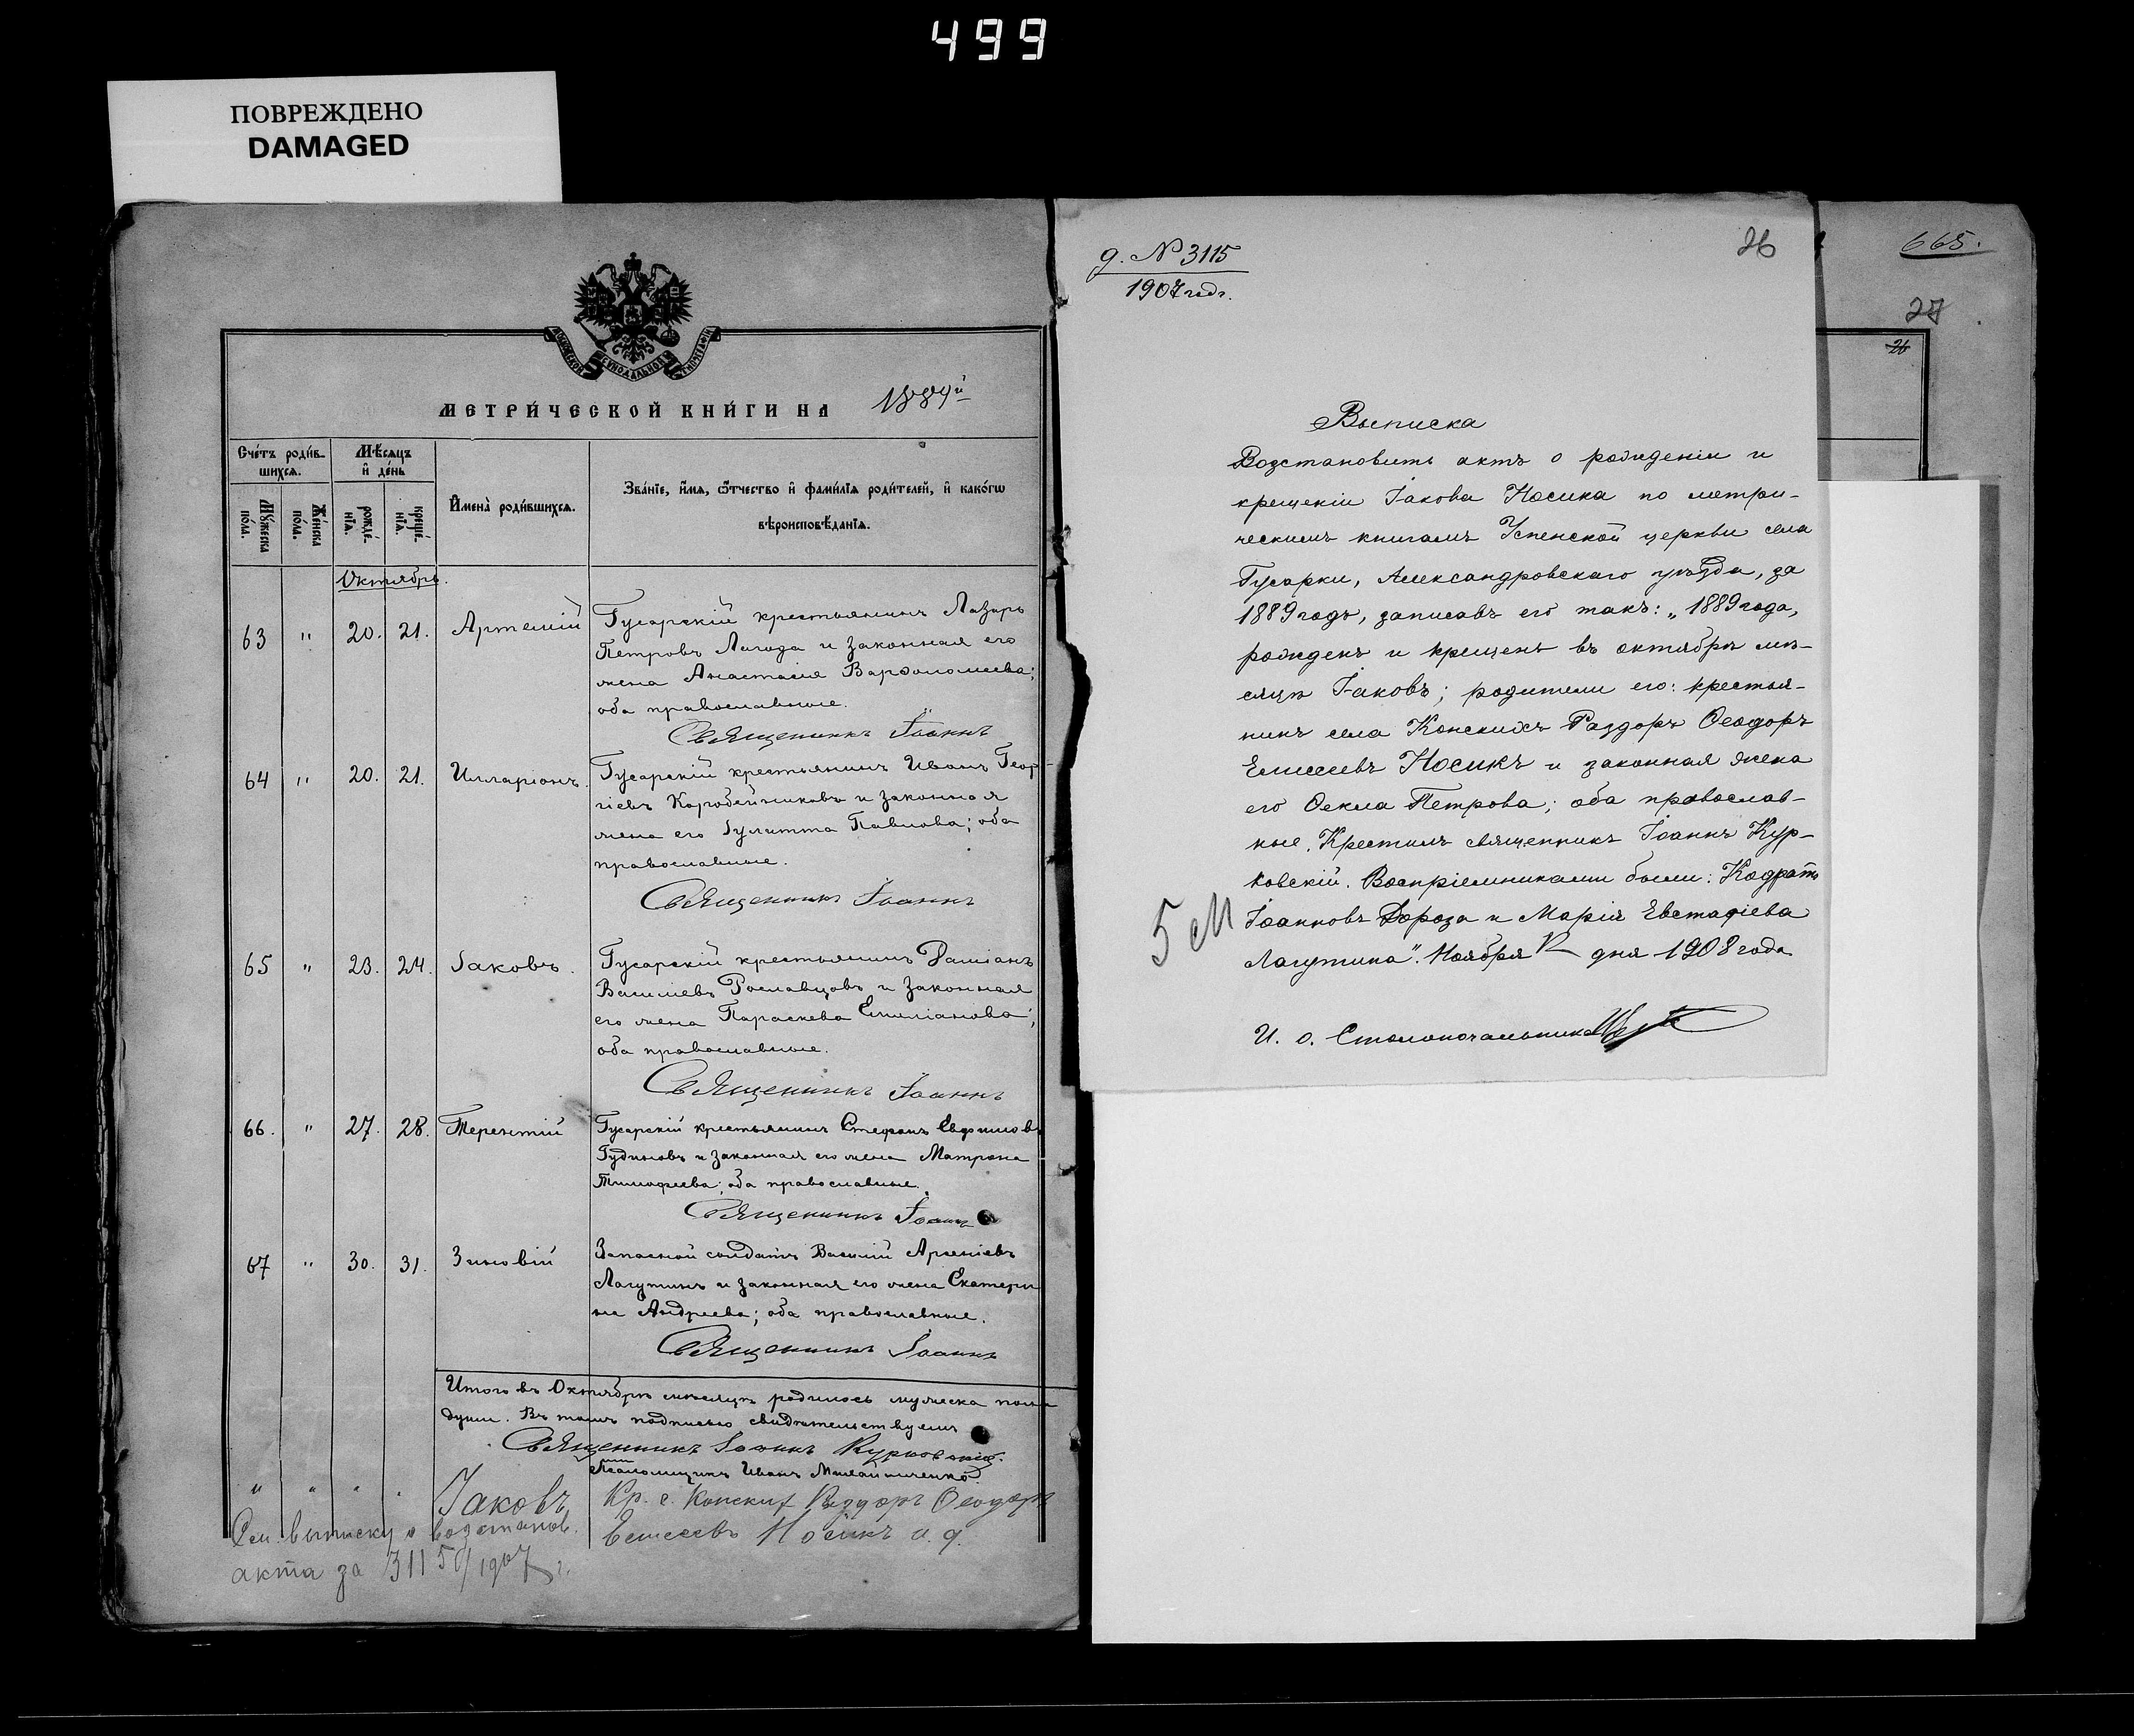 499
ПОВРЕЖДЕНО
DAMAGED
МОСКОВСКОЙ СѴНОДАЛЬНОЙ ТИПОГРАФІИ
МЕТРИ́ЧЕСКОЙ КНИ́ГИ НА 1889й
Счéтъ роди́в-
шихся.
Мѣ́сяцъ
и҆ де́нь
Мꙋ́жеска
по́ла.
Же́нска
по́ла.
рожде́-
нїѧ.
креще́-
нїѧ.
И҆мена̀ роди́вшихсѧ.
Зва́нїе, и҆́мѧ, ѻ҆́тчество и҆ фами́лїѧ роди́телей, и҆ како́гѡ
вѣроисповѣ́данїѧ.
Октябрь.
63 " 20. 21. Артемій Гусарскій крестьянинъ Лазарь
Петровъ Лагода и законная его
жена Анастасія Варѳоломеева;
оба православные.
Священникъ Іоаннъ
64 " 20. 21. Илларіонъ. Гусарскій крестьянинъ Иванъ Геор-
гіевъ Коробейниковъ и законная
жена его Іулитта Павлова; оба
православные.
Священникъ Іоаннъ
65 " 23. 24. Іаковъ. Гусарскій крестьянинъ Даміанъ
Василіевъ Рославцовъ и законная
его жена Параскева Емиліанова;
оба православные.
Священникъ Іоаннъ
66. " 27. 28. Терентій Гусарскій крестьянинъ Стефанъ Евдокимовъ
Гудиновъ и законная его жена Матрона
Тимофеева; оба православные.
Священникъ Іоаннъ
67 " 30. 31. Зиновій Запасной солдатъ Василій Арсеніевъ
Лагутинъ и законная его жена Екатери
на Андреева; оба православные.
Священникъ Іоаннъ
Итого въ Октябрѣ мѣсяцѣ родилось мужеска пола
души. Въ томъ подписью свидѣтельствуемъ
Священникъ Іоаннъ Курковскій.
Псаломщикъ Иванъ
" " " Іаковъ Кр. с. Конских Раздоръ Ѳеодоръ
См. выписку о возстанов. Елисеевъ Носикъ и д.
акта за 3115/1907 г.
д. № 3115
1907 годг.
26
Выписка
Возстановить актъ о рожденіи и
крещеніи Іакова Носика по метри-
ческимъ книгамъ Успенской церкви села
Гусарки, Александровскаго уѣзда, за
1889 годъ, записавъ его такъ: „1889 года,
рожденъ и крещенъ въ октябрѣ мѣ-
сяцѣ Іаковъ; родители его: крестья-
нинъ села Конскихъ Раздоръ Ѳеодоръ
Елисеевъ Носикъ и законная жена
его Ѳекла Петрова; оба православ-
ные. Крестилъ священникъ Іоаннъ Кур-
ковскій. Воспріемниками были: Кодратъ
Іоанновъ Дороза и Марія Евстафіева
Лагутина". Ноября дня 1908 года
5 М
И. о. Столоначальника
665.
27
26